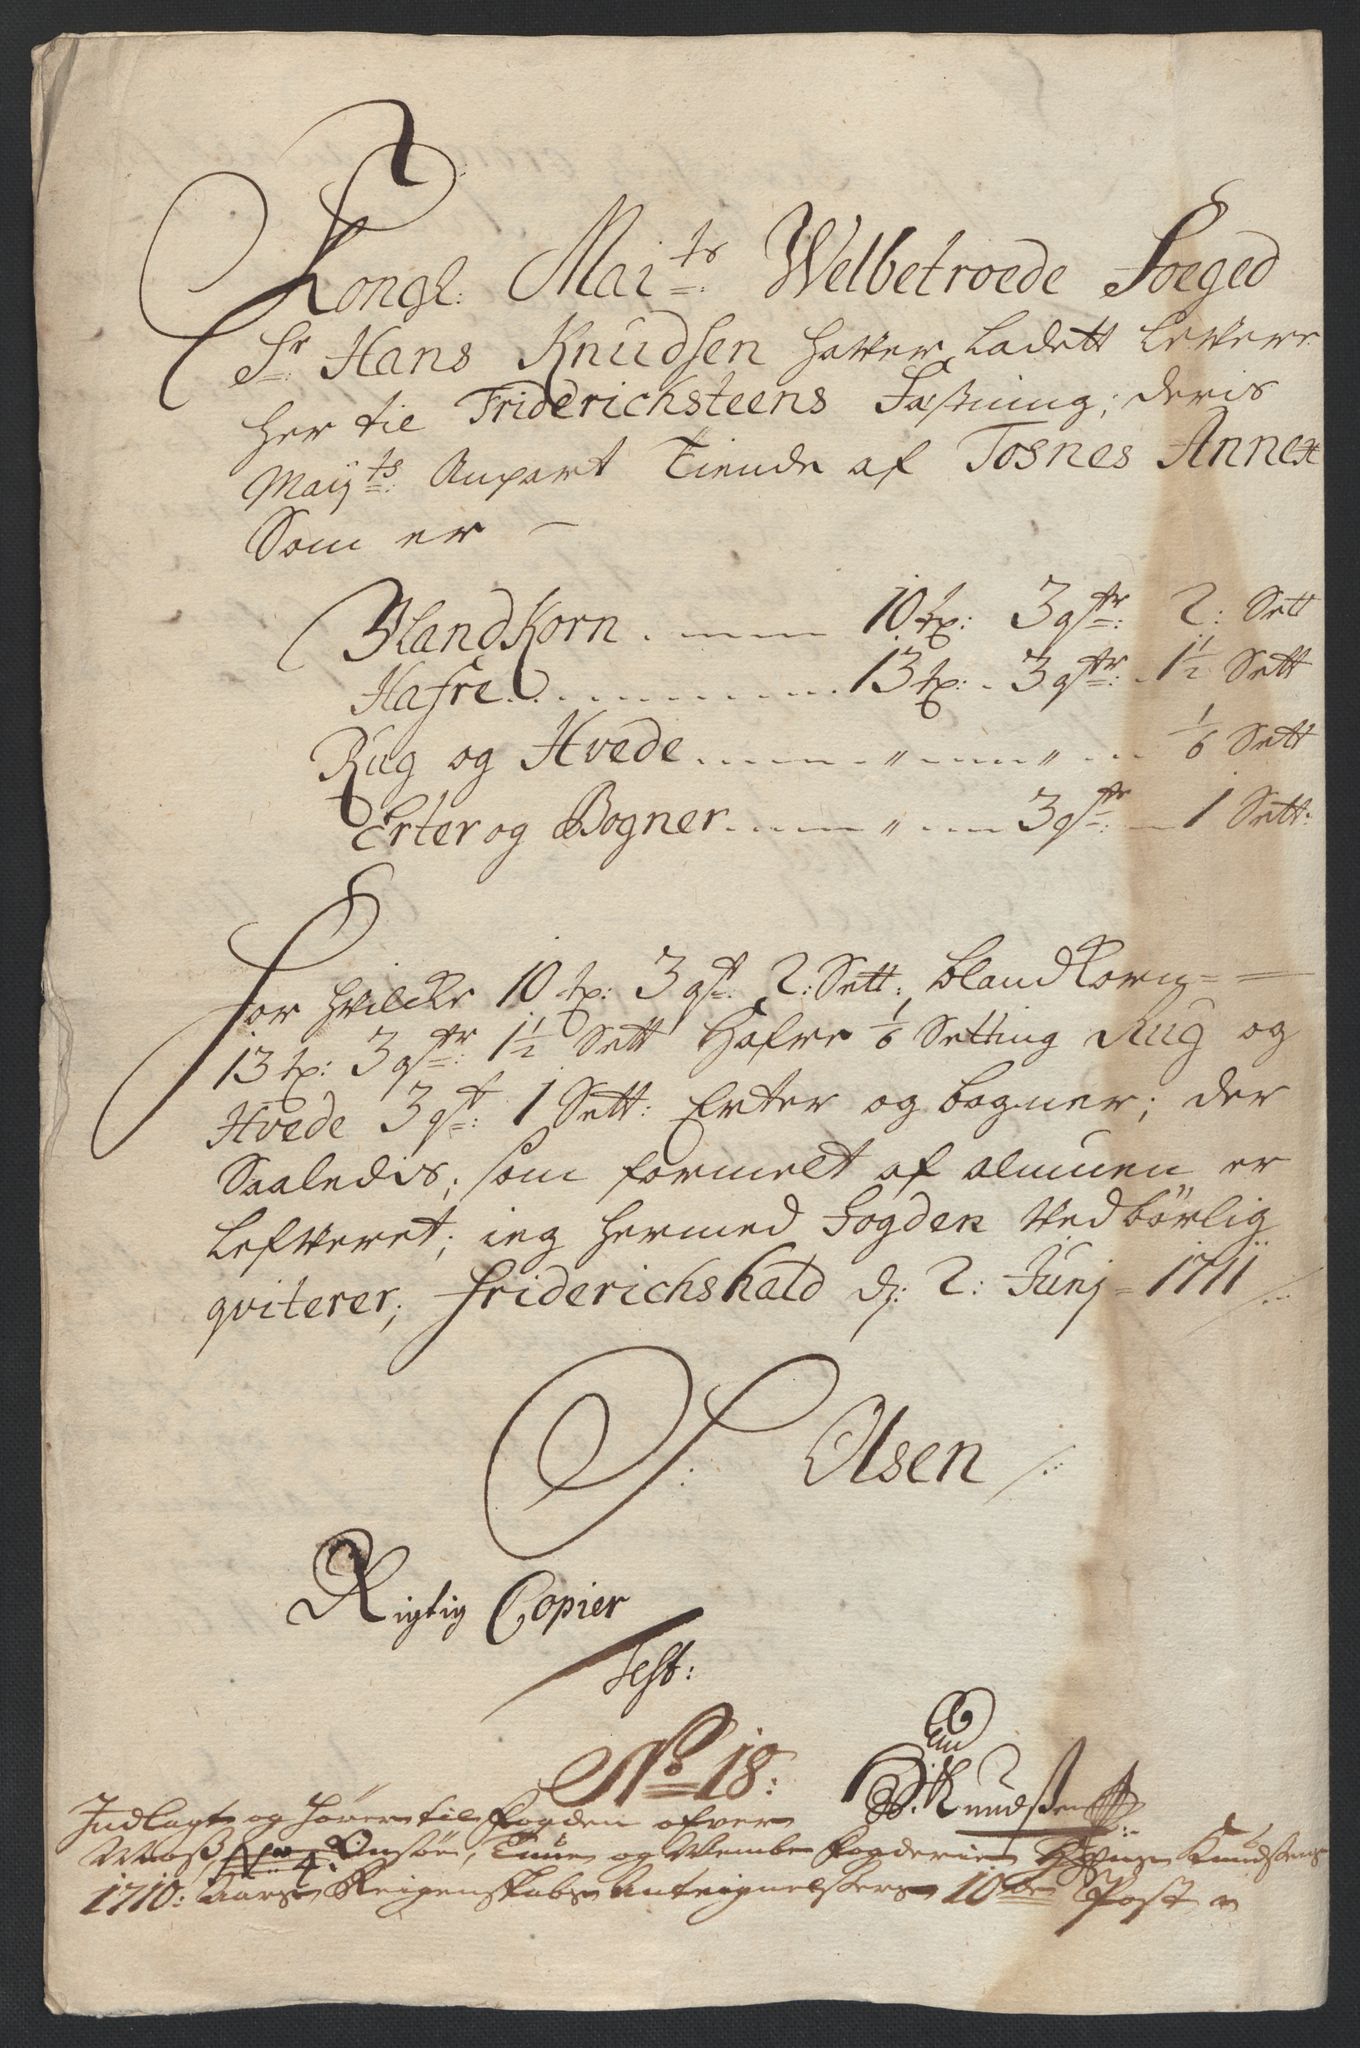 Kongl: Mai:ts Welbetroede Foeged
Sr Hans Knudsen hafver Ladett Levere
her til Friderichsteens Fæstning; deris
Mayts: Anpart Tiende af Tosnes Annex
Som er —
BlandKorn . — — — 10 tr: 3 qtr: 2: Sett
Hafre . . . . . . . . . 13 tr: . 3 qtr: . 1½ Sett
Rug og Hvede . . . . . „ . . . . „ . . . 1/6 Sett
Erter og Bogner . . . . . „ . . . 3 qtr: — 1 Sett:
For hvilcke 10 tr: 3 qt: 2: Sett: blandKorn = =
13 tr: 3 qtr: 1½ Sett Hafre 1/6 Setting Rug og
Hvede 3 qt: 1 Sett: Erter og bogner; der
Saaledis; som formelt af almuen er
Lefveret; ieg hermed Fogden Vedbörlig
qviterer; Friderichshald d: 2: Junj = 1711
Olsen
Rigtig Copier
Test:
No 18:
H: Knudssen
Indlagt og hörer til fogden ofver
Moss, No 4. Onsöe, Tune og Wembe fogderie Hans Knudssens
1710: Aars Reigenskabs Antegnelsers 10de Post